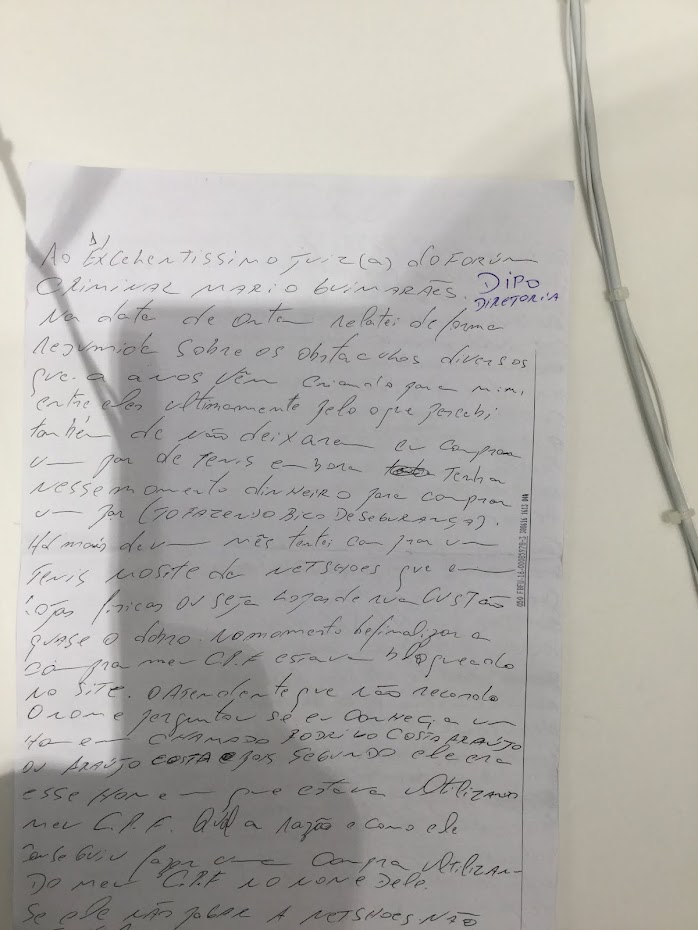 1)
Ao Excelentissimo juiz(a) do Forúm
Criminal Mario Guimarães. DIPO
DIRETORIA
Na data de ontem relatei de forma
resumida sobre os obstaculos diversos
que a anos vêm criando para mim,
entre eles ultimamente pelo que percebi
também de não deixarem eu comprar
um par de tenis embora tenha
nesse momento dinheiro para comprar
um par (TO FAZENDO BICO DE SEGURANÇA).
Há mais de um mês tentei comprar um
tenis no site da NETSHOES que em
lojas fisicas ou seja lojas de rua CUSTÃO
quase o dobro. No momento de finalizar a
compra meu C.P.F estava bloqueado
no SITE. O Atendente que não recordo
o nome perguntou se eu conheçia um
Homem CHAMADO RODRIGO COSTA ARAÚJO
OU ARAÚJO COSTA pois SEGUNDO ele era
esse Homem que estava Utilizando
meu C.P.F. Qual a razão e como ele
conseguiu fazer uma compra Utilizan-
do meu C.P.F no nome dele.
Se ele NÃO pagar A NETSHOES NÃO